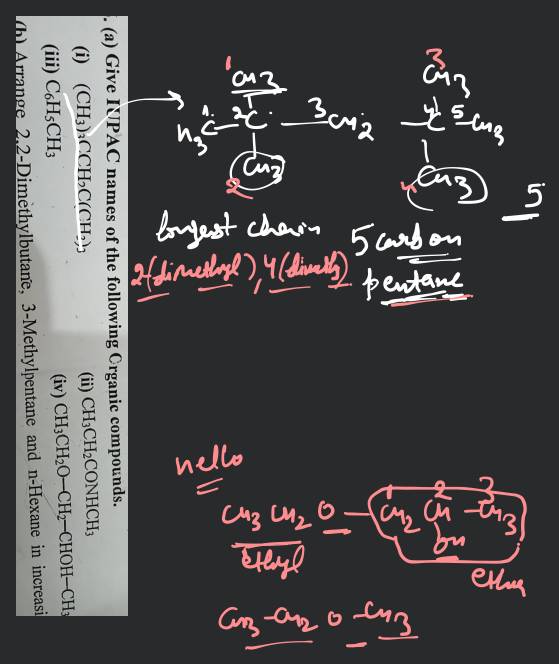 (a) Give IUPAC names of the following Organic compounds.
(i) (CH3)3CCH2C(CH3)3
(ii) CH3CH2CONHCH3
(iii) C6H5CH3
(iv) CH3CH2O—CH2—CHOH—CH3
(b) Arrange 2,2-Dimethylbutane, 3-Methylpentane and n-Hexane in increasi
1 3
CH3 CH3
H3C 1 2 C 3 CH2 4 C 5 CH3
CH3 CH3
2 4 5
longest chain 5 carbon
2(dimethyl), 4(dimethyl) pentane
hello
1 2 3
CH3 CH2 O — CH2 CH - CH3
OH
ethyl
CH3-CH2 O - CH3